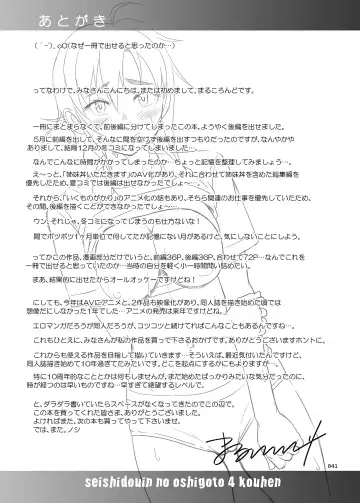 あとがき
( ´-`).oO(なぜ一冊で出せると思ったのか…)
ってなわけで、みなさんこんにちは、または初めまして、まるころんどです。
一冊にまとまらなくて、前後編に分けてしまったこの本、ようやく後編を出せました。
5月に前編を出して、そんなに間を空けず後編を出すつもりだったのですが、なんやかや
ありまして、結局12月の冬コミになってしまいました…。
なんでこんなに時間がかかってしまったのか…ちょっと記憶を整理してみますと…。
え～っと、「姉妹丼いただきます」のAV化があり、それに合わせて姉妹丼を含めた総集編を
優先したため、夏コミでは後編は出せなかったでしょ～…。
それから、「いくものがかり」のアニメ化の話もあり、そちら関連のお仕事を優先していたため、
その間、後編を描くことができなかったでしょ～…。
ウン、それじゃ、冬コミになってしまうのも仕方ないな!
間でポツポツ1ヶ月単位で何してたか記憶にない月があるけど、気にしないことにしよう。
ってかこの作品、漫画部分だけでいうと、前編36P、後編36P、合わせて72P…なんでこれを
一冊で出せると思っていたのか…当時の自分を軽く小一時間問い詰めたい。
まあ、結果的に出せたからオールオッケーですけどね!
にしても、今年はAVにアニメと、2作品も映像化があり、同人誌を描き始めた頃では
想像だにしなかった1年でした…アニメの発売は来年ですけどね…。
エロマンガだろうが同人だろうが、コツコツと続けてればこんなこともあるんですね…。
これもひとえに、みなさんが私の作品を買って下さるおかげです。ありがとうございますホントに。
これからも使える作品を目指して描いていきます…そういえば、最近気付いたんですけど、
同人誌描き始めて10年過ぎてたみたいです。どこを起点にするかにもよりますが…。
特に10周年的なこととかは何もしませんが、まだ始めたばっかりみたいな気分だったのに、
時が経つのは早いものですね…早すぎて絶望するレベルで。
と、ダラダラ書いていたらスペースがなくなってきたのでこの辺で。
この本を買ってくれた皆さま、ありがとうございました。
よければまた、次の本も買ってやって下さいませ。
では、また。ノシ
041
seishidouin no oshigoto 4 kouhen